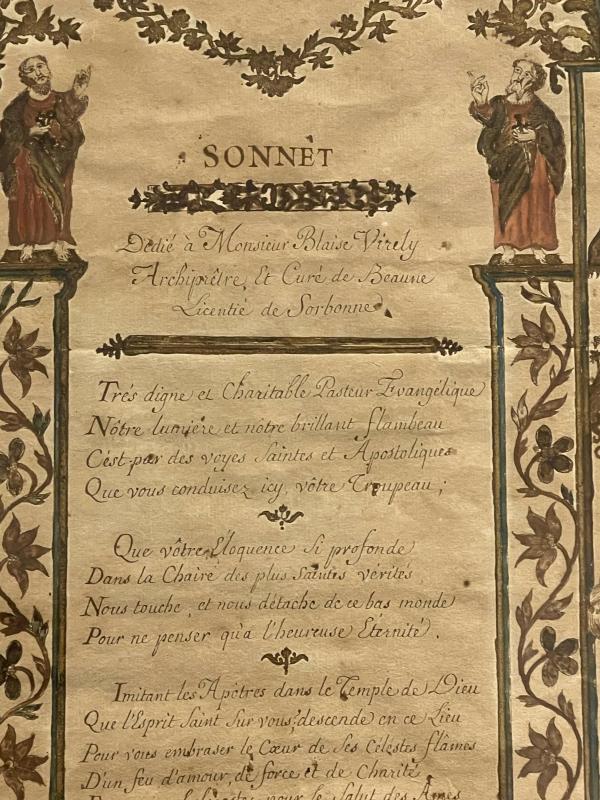 SONNET
Dedié à Monsieur Blaise Virely
Archiprêtre, Et Curé de Beaune
Licentié de Sorbonne.
Trés digne et Charitable Pasteur Evangélique
Nôtre lumiére et nôtre brillant flambeau
C'ést par des voyes Saintes et Apostoliques
Que vous conduisez icy, vôtre Troupeau;
Que vôtre Eloquence si profonde
Dans la Chaire des plus Saintes vérités
Nous touche, et nous détache de ce bas monde
Pour ne penser qu'à l'heureuse Eternité.
Imitant les Apôtres dans le Temple de Dieu
Que l'Esprit Saint Sur vous descende en ce Lieu
Pour vous embraser le Cœur de Ses Célestes flâmes
D'un feu d'amour, de force et de Charité
pour le Salut des Ames